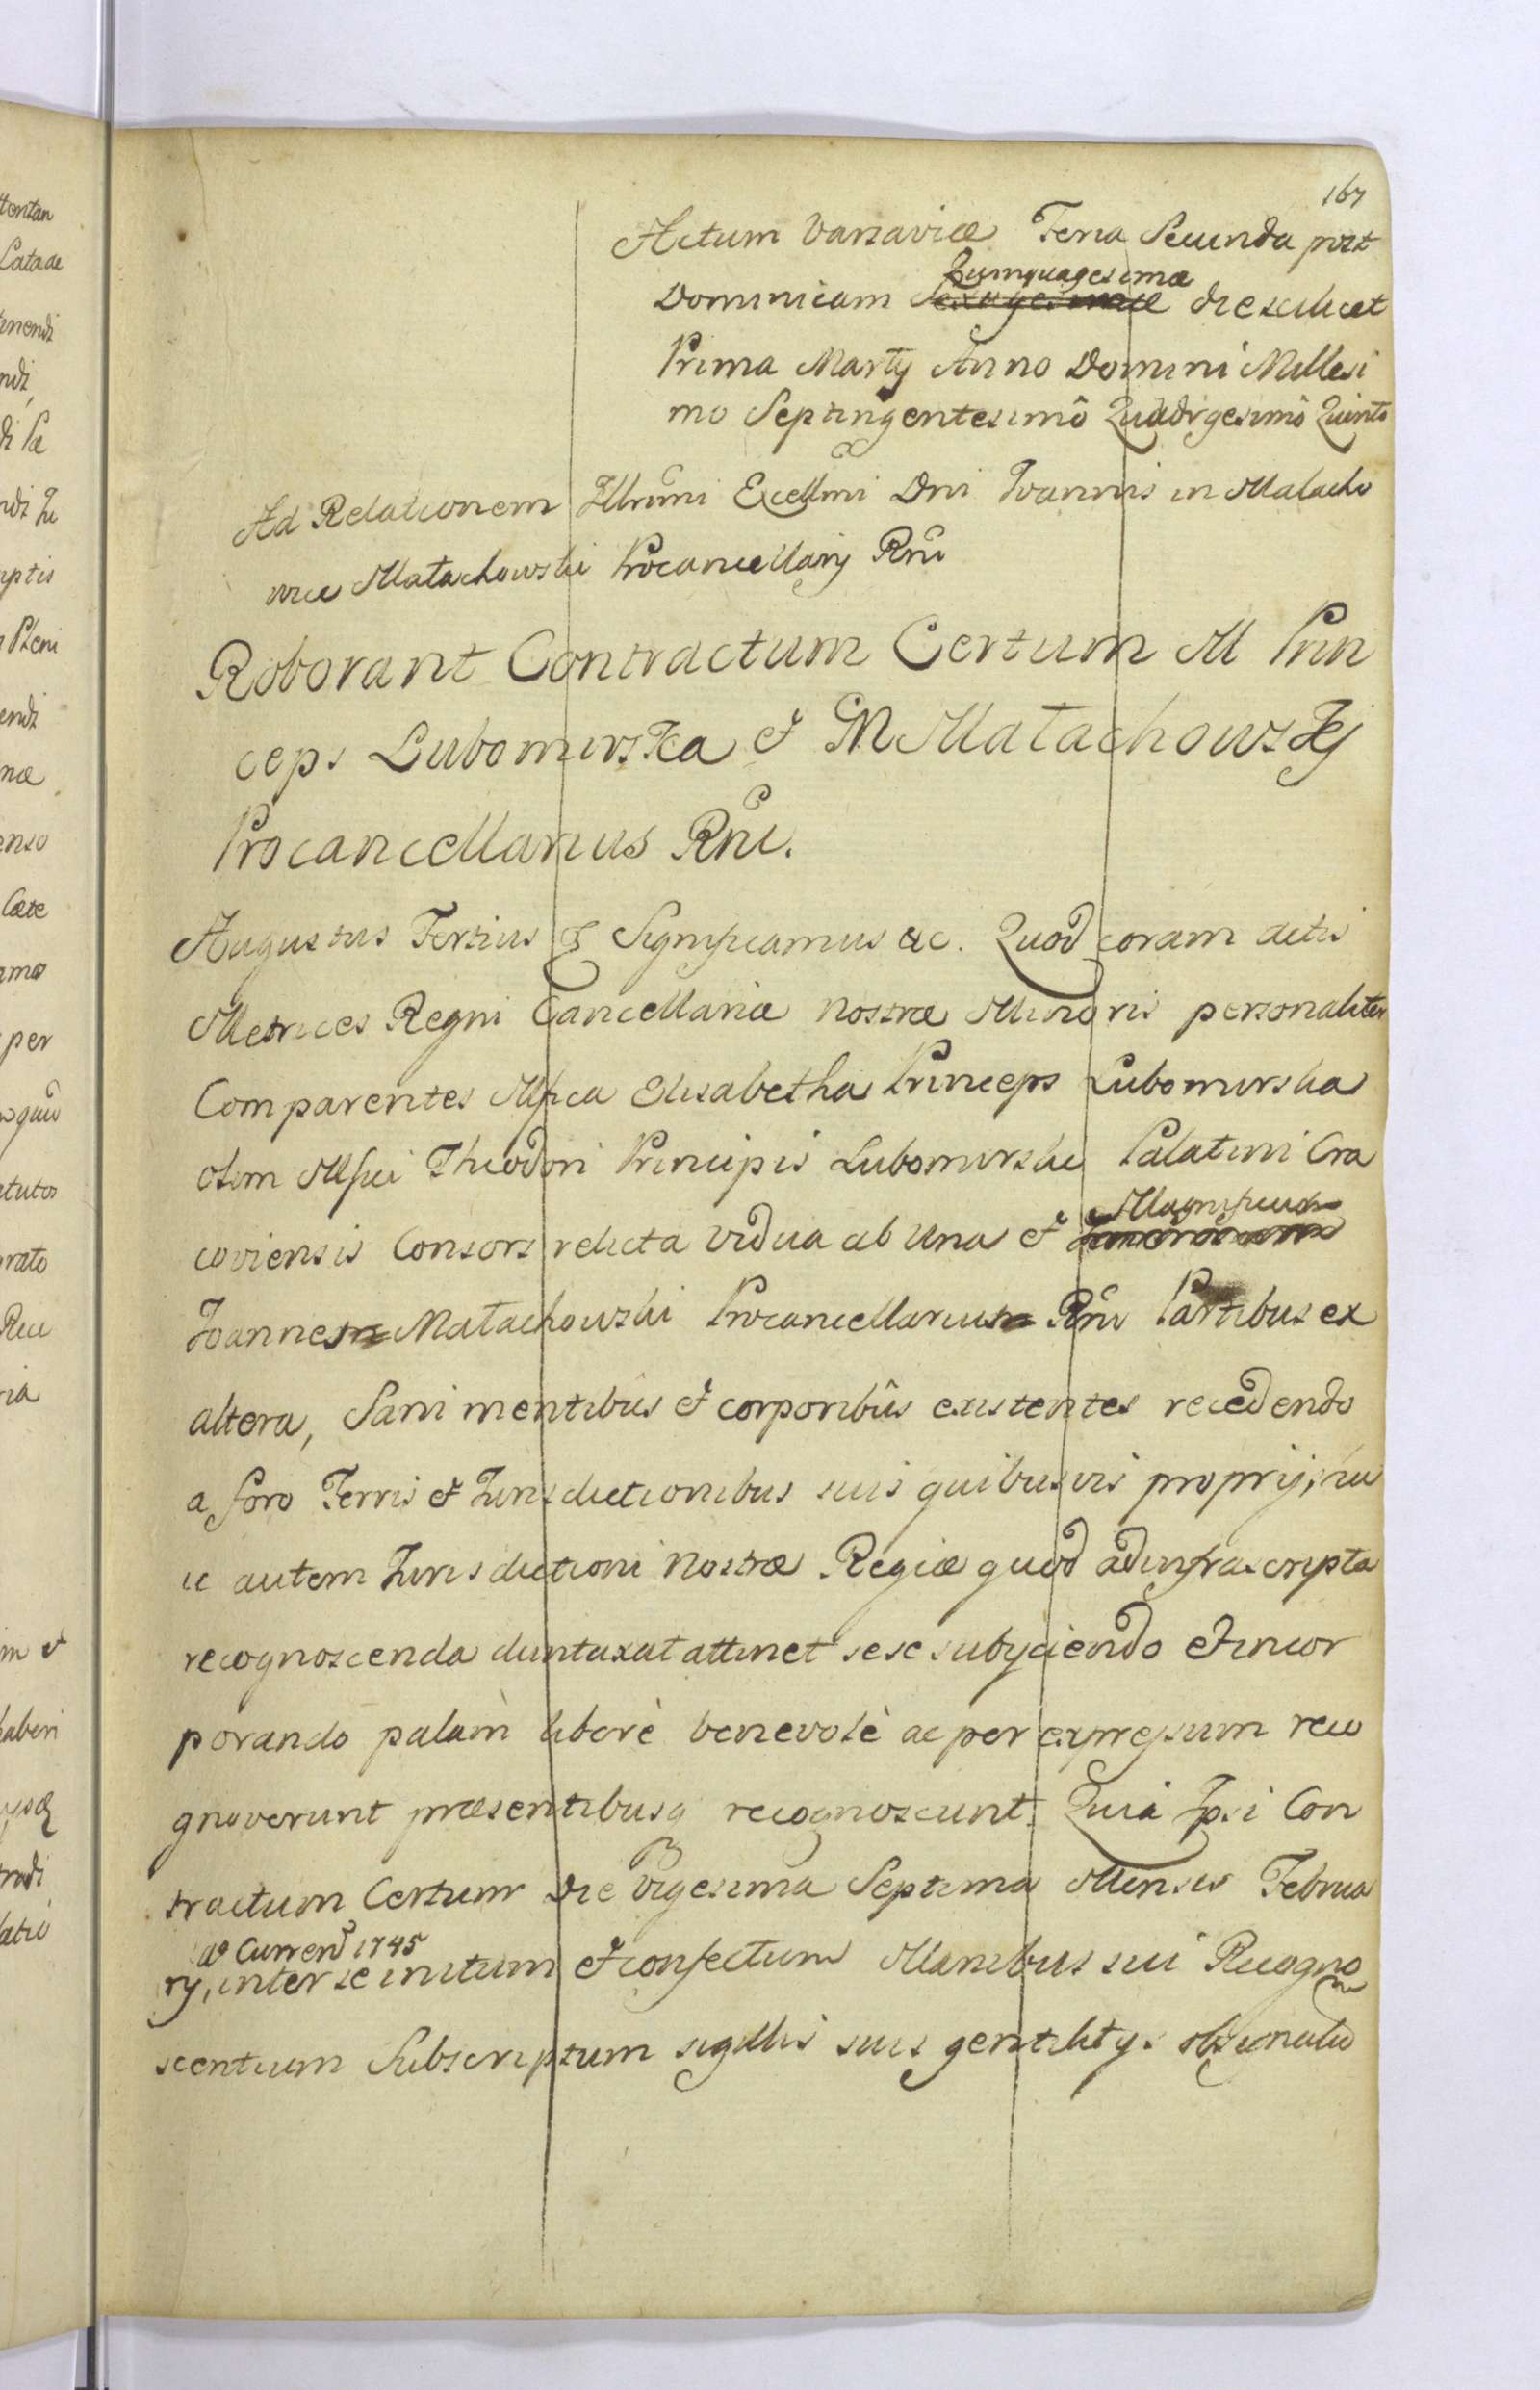 167
Actum Varsaviæ Feria Secunda post
Quinquagesimæ
Dominicam Sexagesimæ die scilicet
Prima Martij Anno Domini Millesi
mo Septingentesimô Quadrigesimô Quinto
Ad Relationem Illrmi Excellmi Dni Joannis in Malacho
wice Małachowski Procancellarij Rni
Roborant Contractum Certum M Prin
ceps Lubomirska et M Małachowskj
Procancellarius Rni.
Augustus Tertius & Significamus &c. Quod coram actis
Metrices Regni Cancellariæ nostræ Minoris personaliter
Comparentes Mfica Elisabetha Princeps Lubomirska
olim Mfici Theodori Principis Lubomirski Palatini Cra
coviensis Consors relicta vidua ab una et
Magnificus
Joannes Małachowski Procancellarius Rni Partibus ex
altera, Sani mentibus et corporibûs existentes recedendo
a foro Terris et Jurisdictionibus suis quibusvis proprijs, hu
ic autem Jurisdictioni Nostræ Regiæ quod ad infrascripta
recognoscenda duntaxat attinet sese subyciendo et incor
porando palàm liberè benevolè ac per expressum reco
gnoverunt præsentibusq recognoscunt. Quià Ipsi Con
tractum Certum Die Vigesima Septima Mensis Februa
ao Curren 1745
rij, inter se initum et confectum Manibus sui Recogno
scentium Subscriptum sigillis suis gentilitys obsignatu